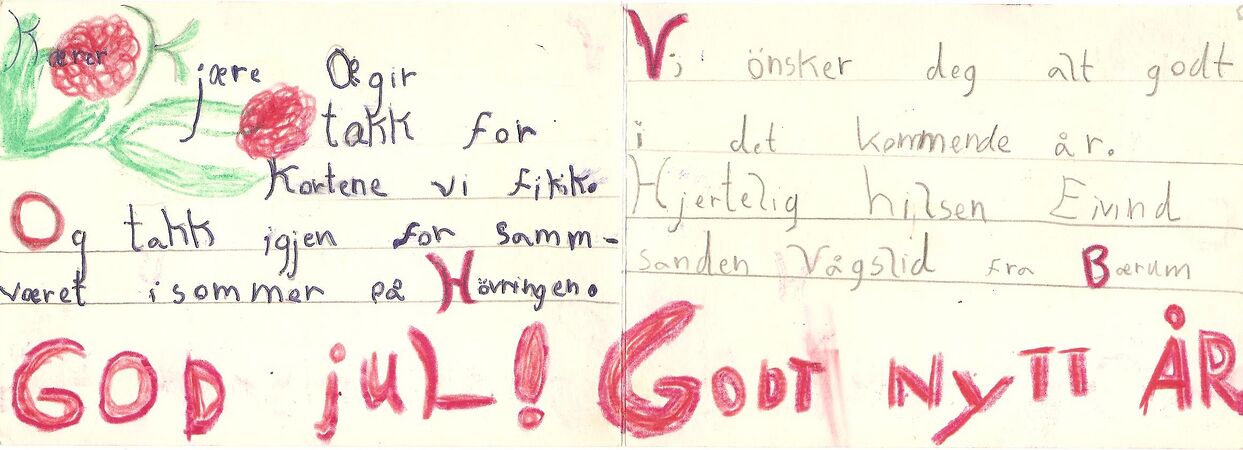 Kæror
Kjære Ægir
takk for
Kortene vi fikk.
Og takk igjen for samm-
været i sommer på Hövringen.
GOD jUL!
Vi önsker deg alt godt
i det kommende år.
Hjertelig hilsen Eivind
sanden Vågslid fra Bærum
GODT NYTT ÅR